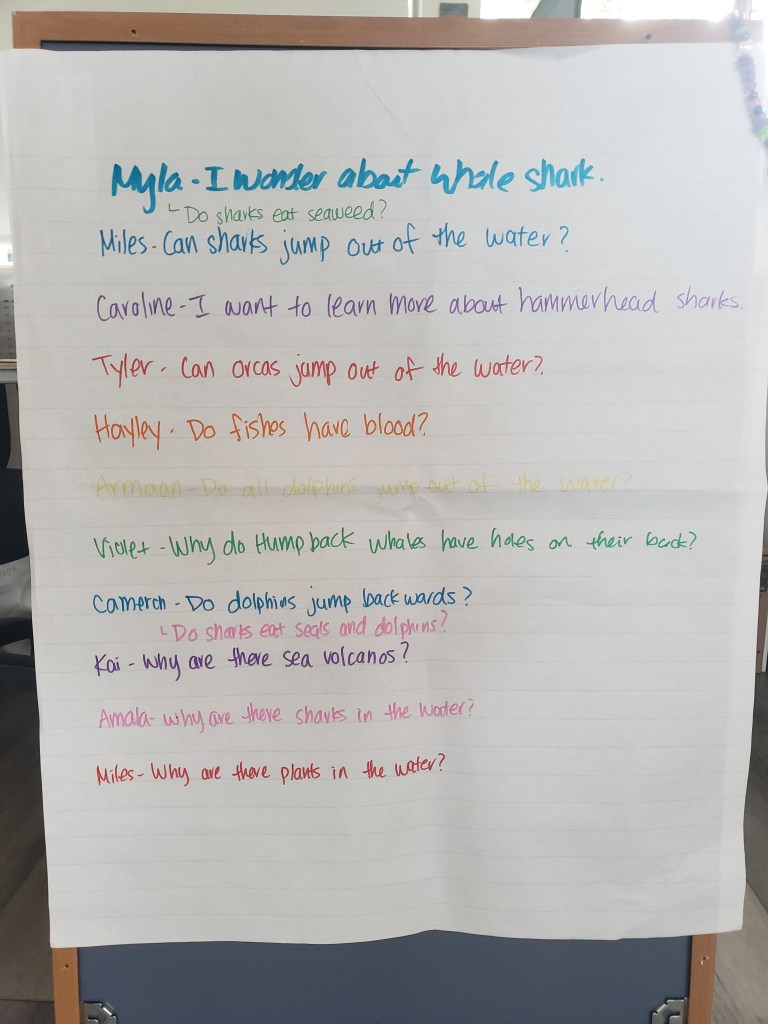 Myla - I wonder about whale shark.
└ Do sharks eat seaweed?
Miles - Can sharks jump out of the water?
Caroline - I want to learn more about hammerhead sharks.
Tyler - Can orcas jump out of the water?
Hayley - Do fishes have blood?
Armaan - Do all dolphins jump out of the water?
Violet - Why do Humpback whales have holes on their back?
Cameron - Do dolphins jump backwards?
└ Do sharks eat seals and dolphins?
Kai - Why are there sea volcanos?
Amala - Why are there sharks in the water?
Miles - Why are there plants in the water?